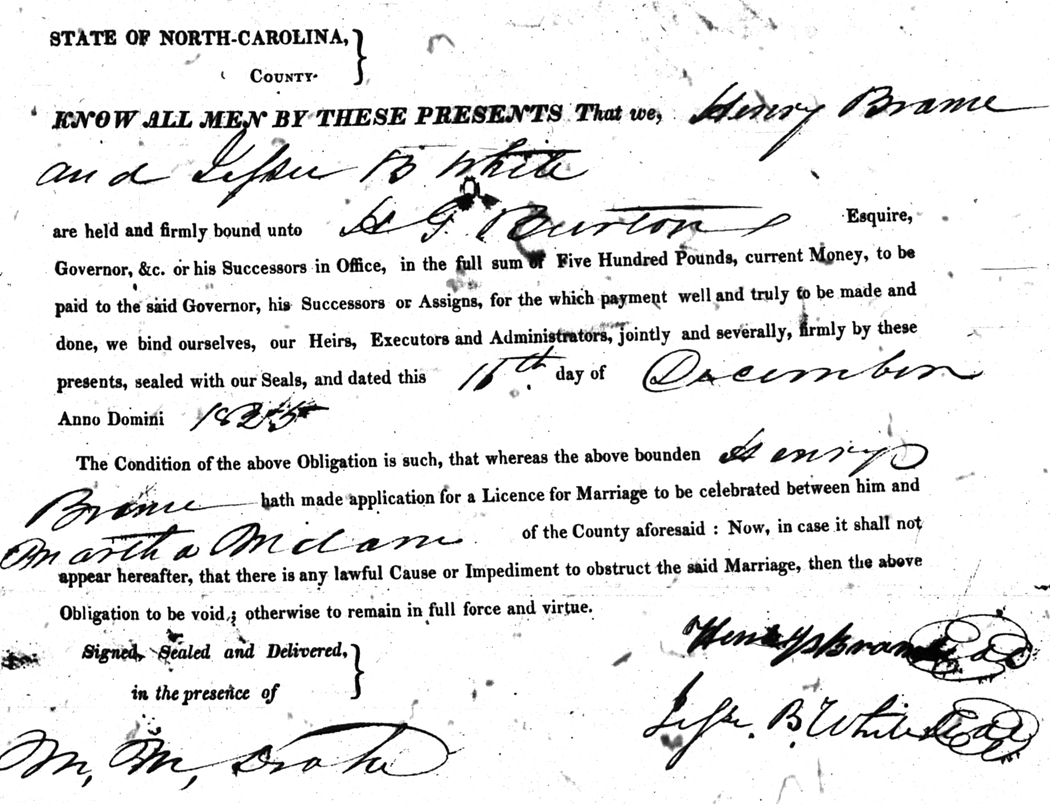 STATE OF NORTH-CAROLINA,
COUNTY.
KNOW ALL MEN BY THESE PRESENTS That we, Henry Brame
and Jesse B White
are held and firmly bound unto H G Burton Esquire,
Governor, &c. or his Successors in Office, in the full sum of Five Hundred Pounds, current Money, to be
paid to the said Governor, his Successors or Assigns, for the which payment well and truly to be made and
done, we bind ourselves, our Heirs, Executors and Administrators, jointly and severally, firmly by these
presents, sealed with our Seals, and dated this day of December
Anno Domini 1825
The Condition of the above Obligation is such, that whereas the above bounden Henry
Brame hath made application for a Licence for Marriage to be celebrated between him and
Martha of the County aforesaid : Now, in case it shall not
appear hereafter, that there is any lawful Cause or Impediment to obstruct the said Marriage, then the above
Obligation to be void ; otherwise to remain in full force and virtue.
Signed, Sealed and Delivered,
in the presence of
Henry Brame Seal
Jesse B. White Seal
M, M, Drake